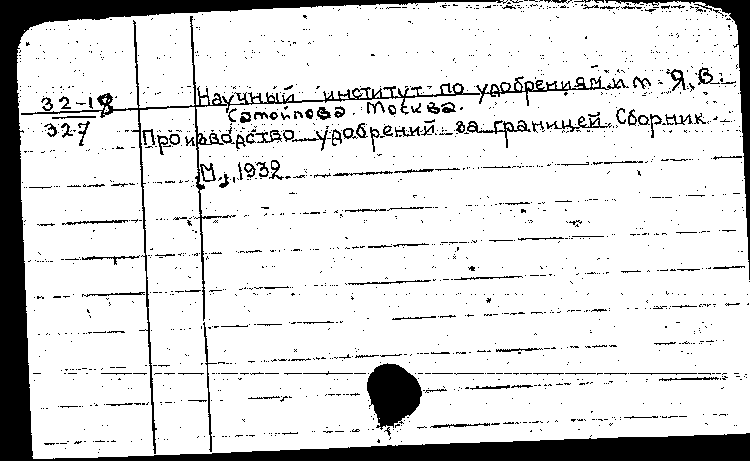 32-18
327
Научный институт по удобрениям им. Я. В.
Самойлова. Москва.
Производство удобрений за границей. Сборник.
М., 1932